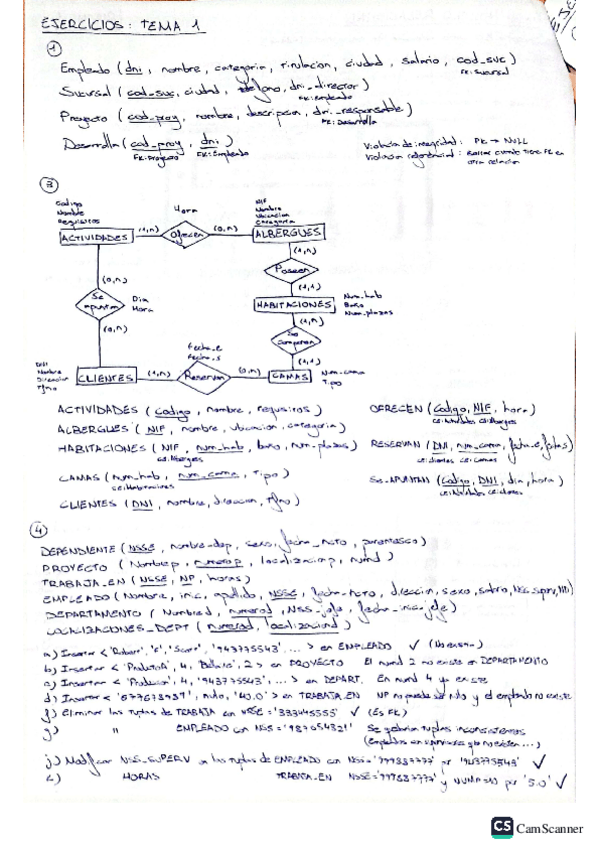 EJERCICIOS: TEMA 1
①
Empleado (dni, nombre, categoria, titulacion, ciudad, salario, cod_suc)
FK: Sucursal
Sucursal (cod_suc, ciudad, telefono, dni_director)
FK: Empleado
Proyecto (cod_proy, nombre, descripcion, dni_responsable)
FK: Desarrolla
Desarrolla (cod_proy, dni)
FK: Proyecto FK: Empleado
Violación de integridad: PK → NULL
Violación referencial: Borrar cuando tiene FK en
otra relación
③
Codigo
Nombre
Requisitos
ACTIVIDADES
(1,n)
Hora
Ofrecen
(0,n)
NIF
Nombre
Ubicacion
Categoria
ALBERGUES
(1,1)
Poseen
(1,1)
HABITACIONES
Num_hab
Baño
Num_plazas
(1,n)
Se componen
(1,1)
CAMAS
Num_cama
Tipo
(0,n)
Se apuntan
Dia
Hora
(0,n)
DNI
Nombre
Direccion
Tfno
CLIENTES
(1,n)
Fecha_e
Fecha_s
Reservan
(0,n)
ACTIVIDADES (codigo, nombre, requisitos)
ALBERGUES (NIF, nombre, ubicacion, categoria)
HABITACIONES (NIF, num_hab, baño, num_plazas)
CE: Albergues
CAMAS (num_hab, num_cama, tipo)
CE: Habitaciones
CLIENTES (DNI, nombre, direccion, tfno)
OFRECEN (Codigo, NIF, hora)
CE: Actividades CE: Albergues
RESERVAN (DNI, num_cama, fecha_e, fecha_s)
CE: Clientes CE: Camas
Se-APUNTAN (Codigo, DNI, dia, hora)
CE: Actividades CE: Clientes
④
DEPENDIENTE (NSSE, nombre_dep, sexo, fecha_ncto, parentesco)
PROYECTO (Nombrep, numerop, localizacionp, numd)
TRABAJA_EN (NSSE, NP, horas)
EMPLEADO (Nombre, inic, apellido, NSSE, fecha_ncto, direccion, sexo, salario, NSS_superv, ND)
DEPARTAMENTO (Nombred, numerod, NSS_jefe, fecha_inic_jefe)
LOCALIZACIONES_DEPT (numerod, localizaciond)
a) Insertar <'Robert', 'F', 'Scott', '943775543', ...> en EMPLEADO ✓ (No existía)
b) Insertar <'ProductoA', 4, 'Bellaire', 2> en PROYECTO El numd 2 no existe en DEPARTAMENTO
c) Insertar <'Produccion', 4, '943775543', ...> en DEPART. El numd 4 ya existe
d) Insertar <'677678989', nulo, '40.0'> en TRABAJA_EN NP no puede ser nulo y el empleado no existe
f) Eliminar las tuplas de TRABAJA con NSSE = '333445555' ✓ (Es FK)
g) " EMPLEADO con NSS = '987654321' Se quedarían tuplas inconsistentes
(Empleados con supervisores que no existen...)
j) Modificar NSS_SUPERV en las tuplas de EMPLEADO con NSS = '999887777' por '943775543' ✓
HORAS TRABAJA_EN NSSE = '999887777' y NUMP = 10 por '5.0' ✓
CS CamScanner